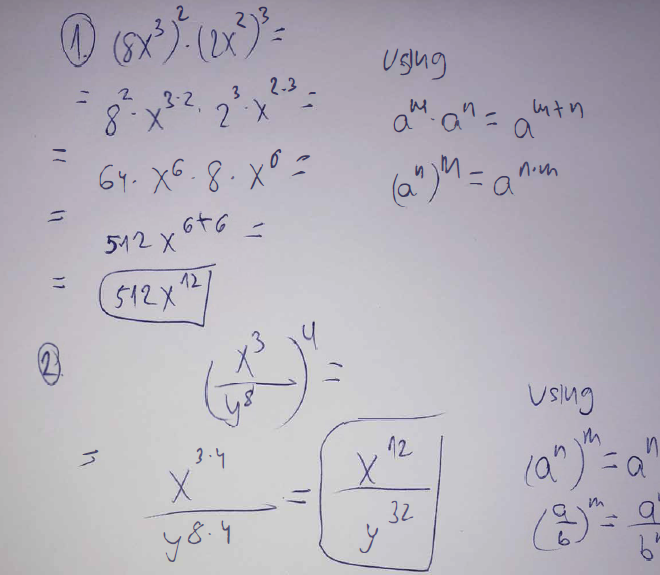 1. (8x³)² · (2x²)³ =
= 8² · x^{3·2} · 2³ · x^{2·3} =
= 64 · x⁶ · 8 · x⁶ =
= 512x^{6+6} =
= 512x¹²
Using
a^m · a^n = a^{m+n}
(a^n)^m = a^{n·m}
2. (x³/y⁸)⁴ =
= x^{3·4}/y^{8·4} = x¹²/y³²
Using
(a^n)^m = a^n
(a/b)^m = a/b